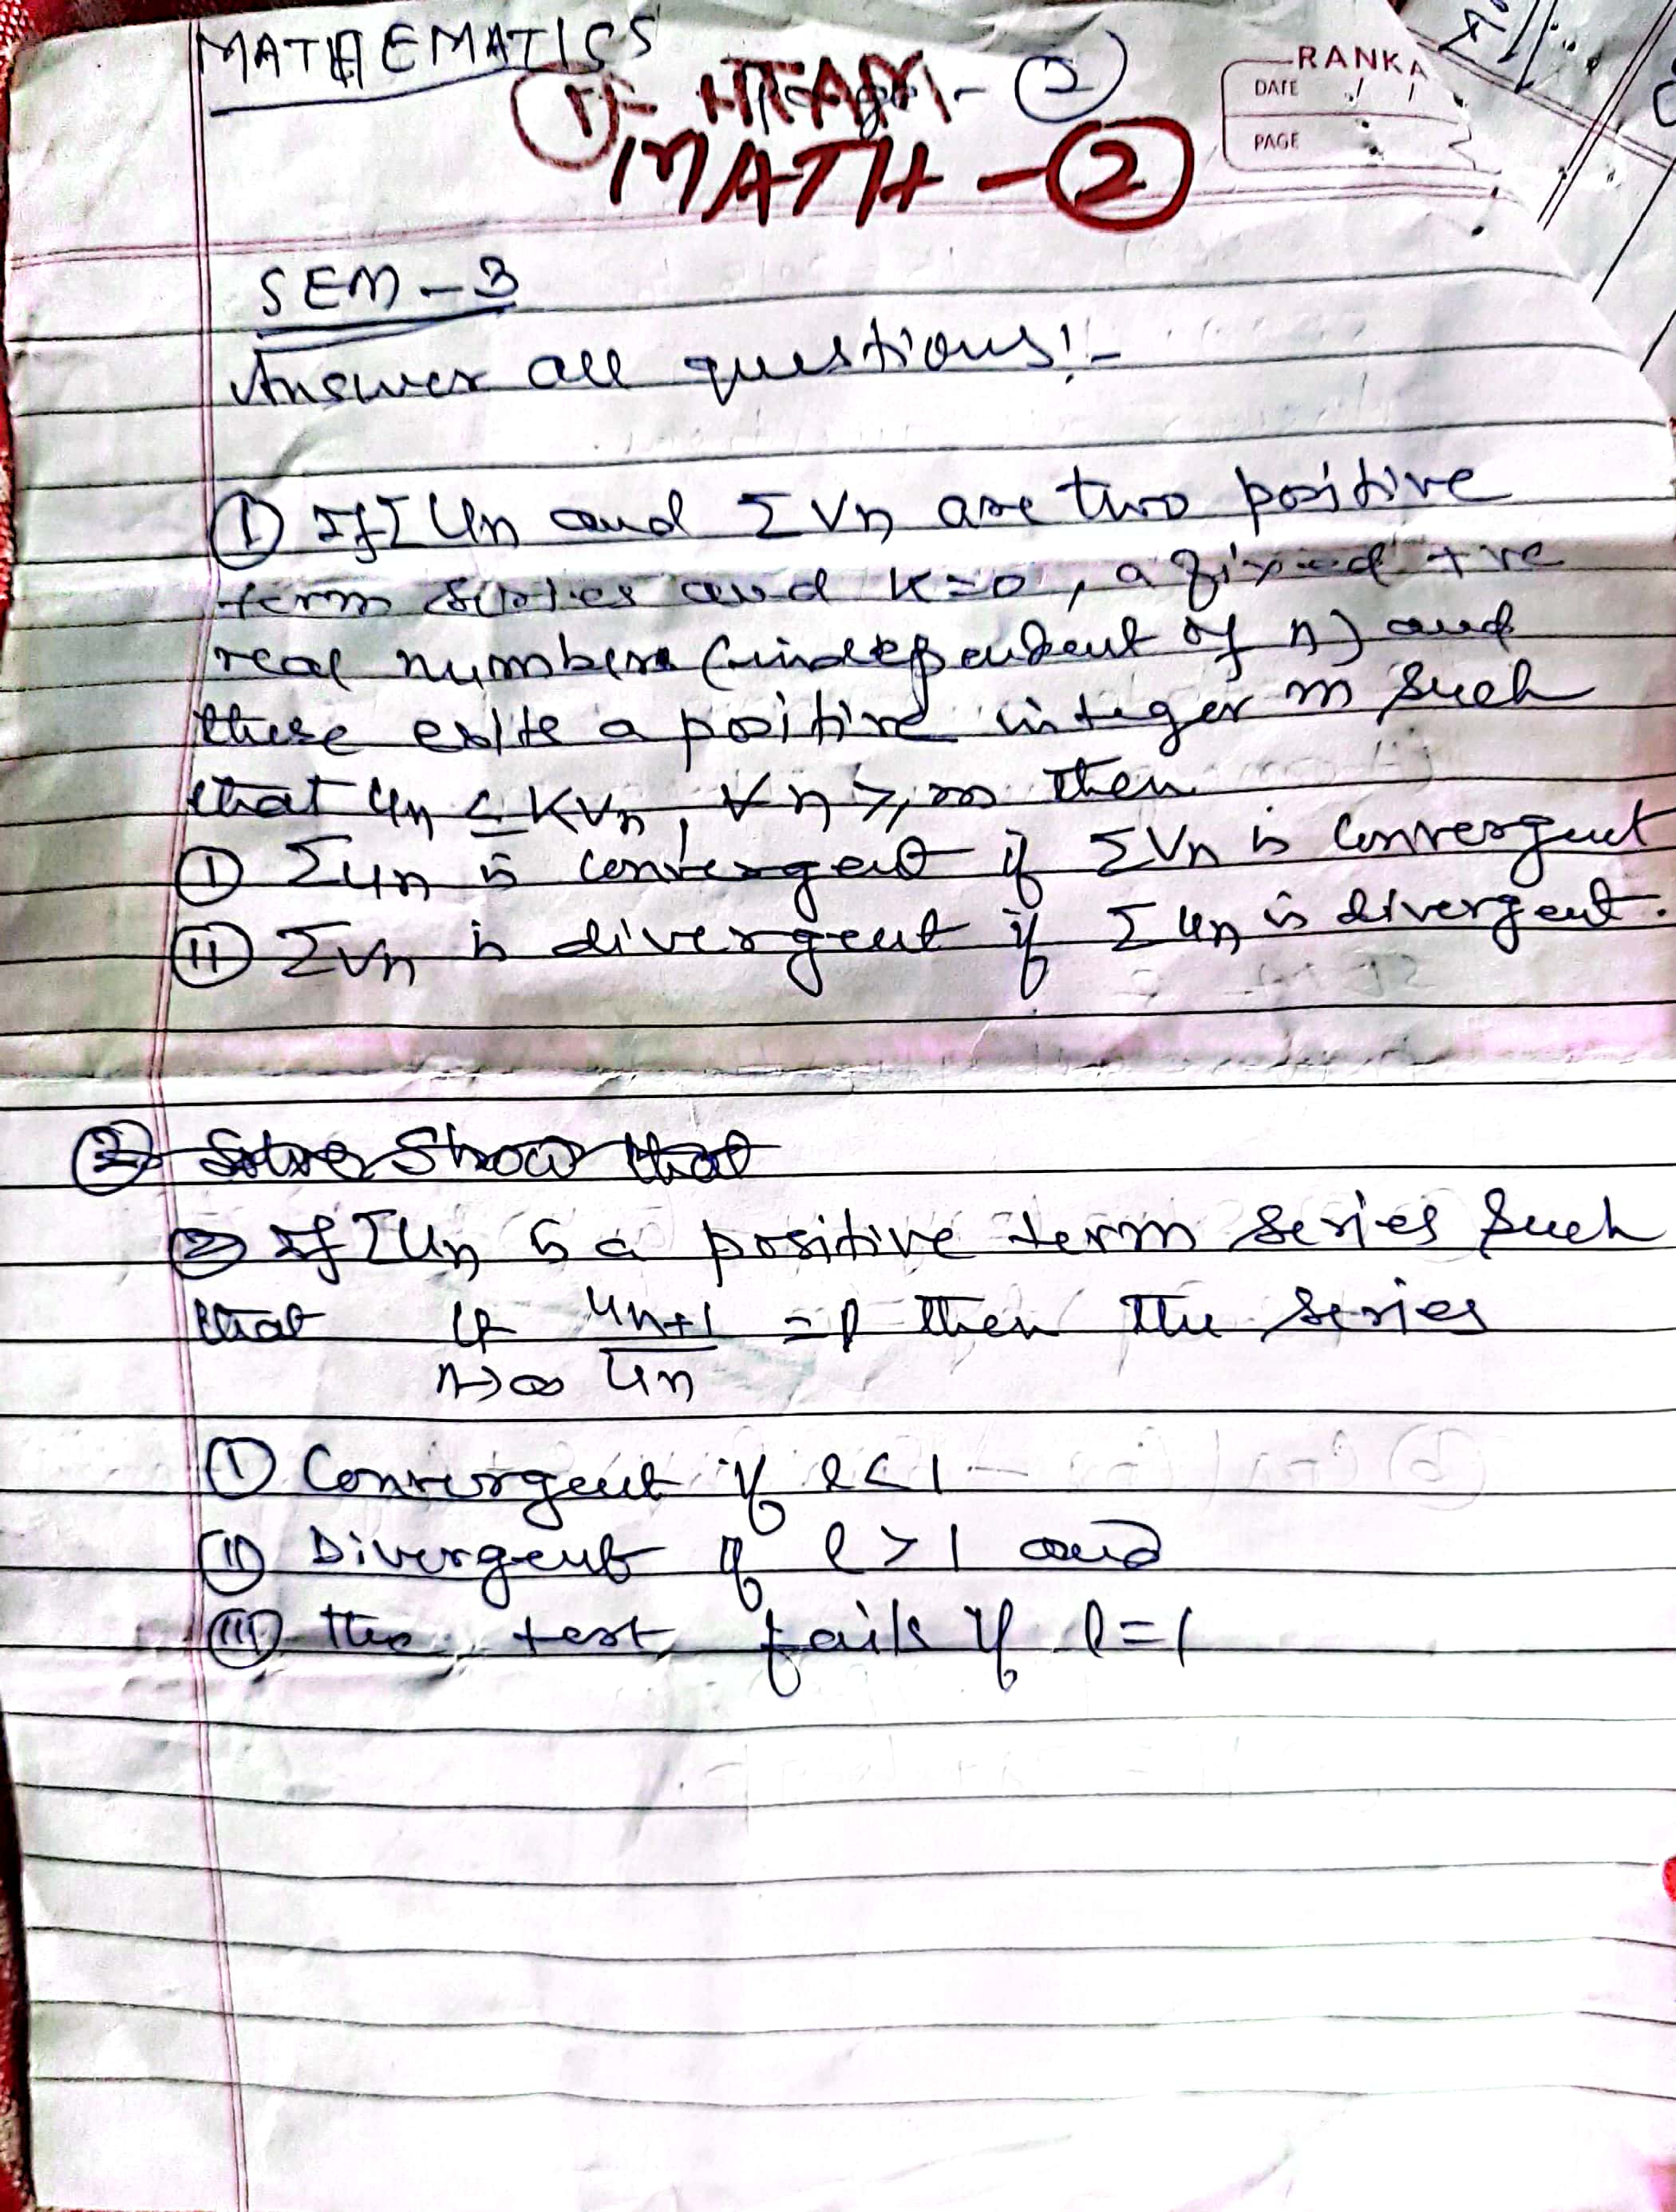 MATHEMATICS
②
MATH - ②
RANKA
DATE / /
PAGE
SEM - 3
Answer all questions:-
① If Σ Un and Σ Vn are two positive
term series and K=0, a fixed +ve
real number (independent of n) and
there exits a positive integer m such
that un ≤ KVn, ∀ n ≥ m then
① Σun is convergent if ΣVn is convergent
② ΣVn is divergent if Σ un is divergent.
② Solve Show that
② If Σ Un is a positive term series such
that lt n→∞ Un+1/Un = l then the series
① Convergent if l < 1
② Divergent if l > 1 and
③ the test fails if l = 1